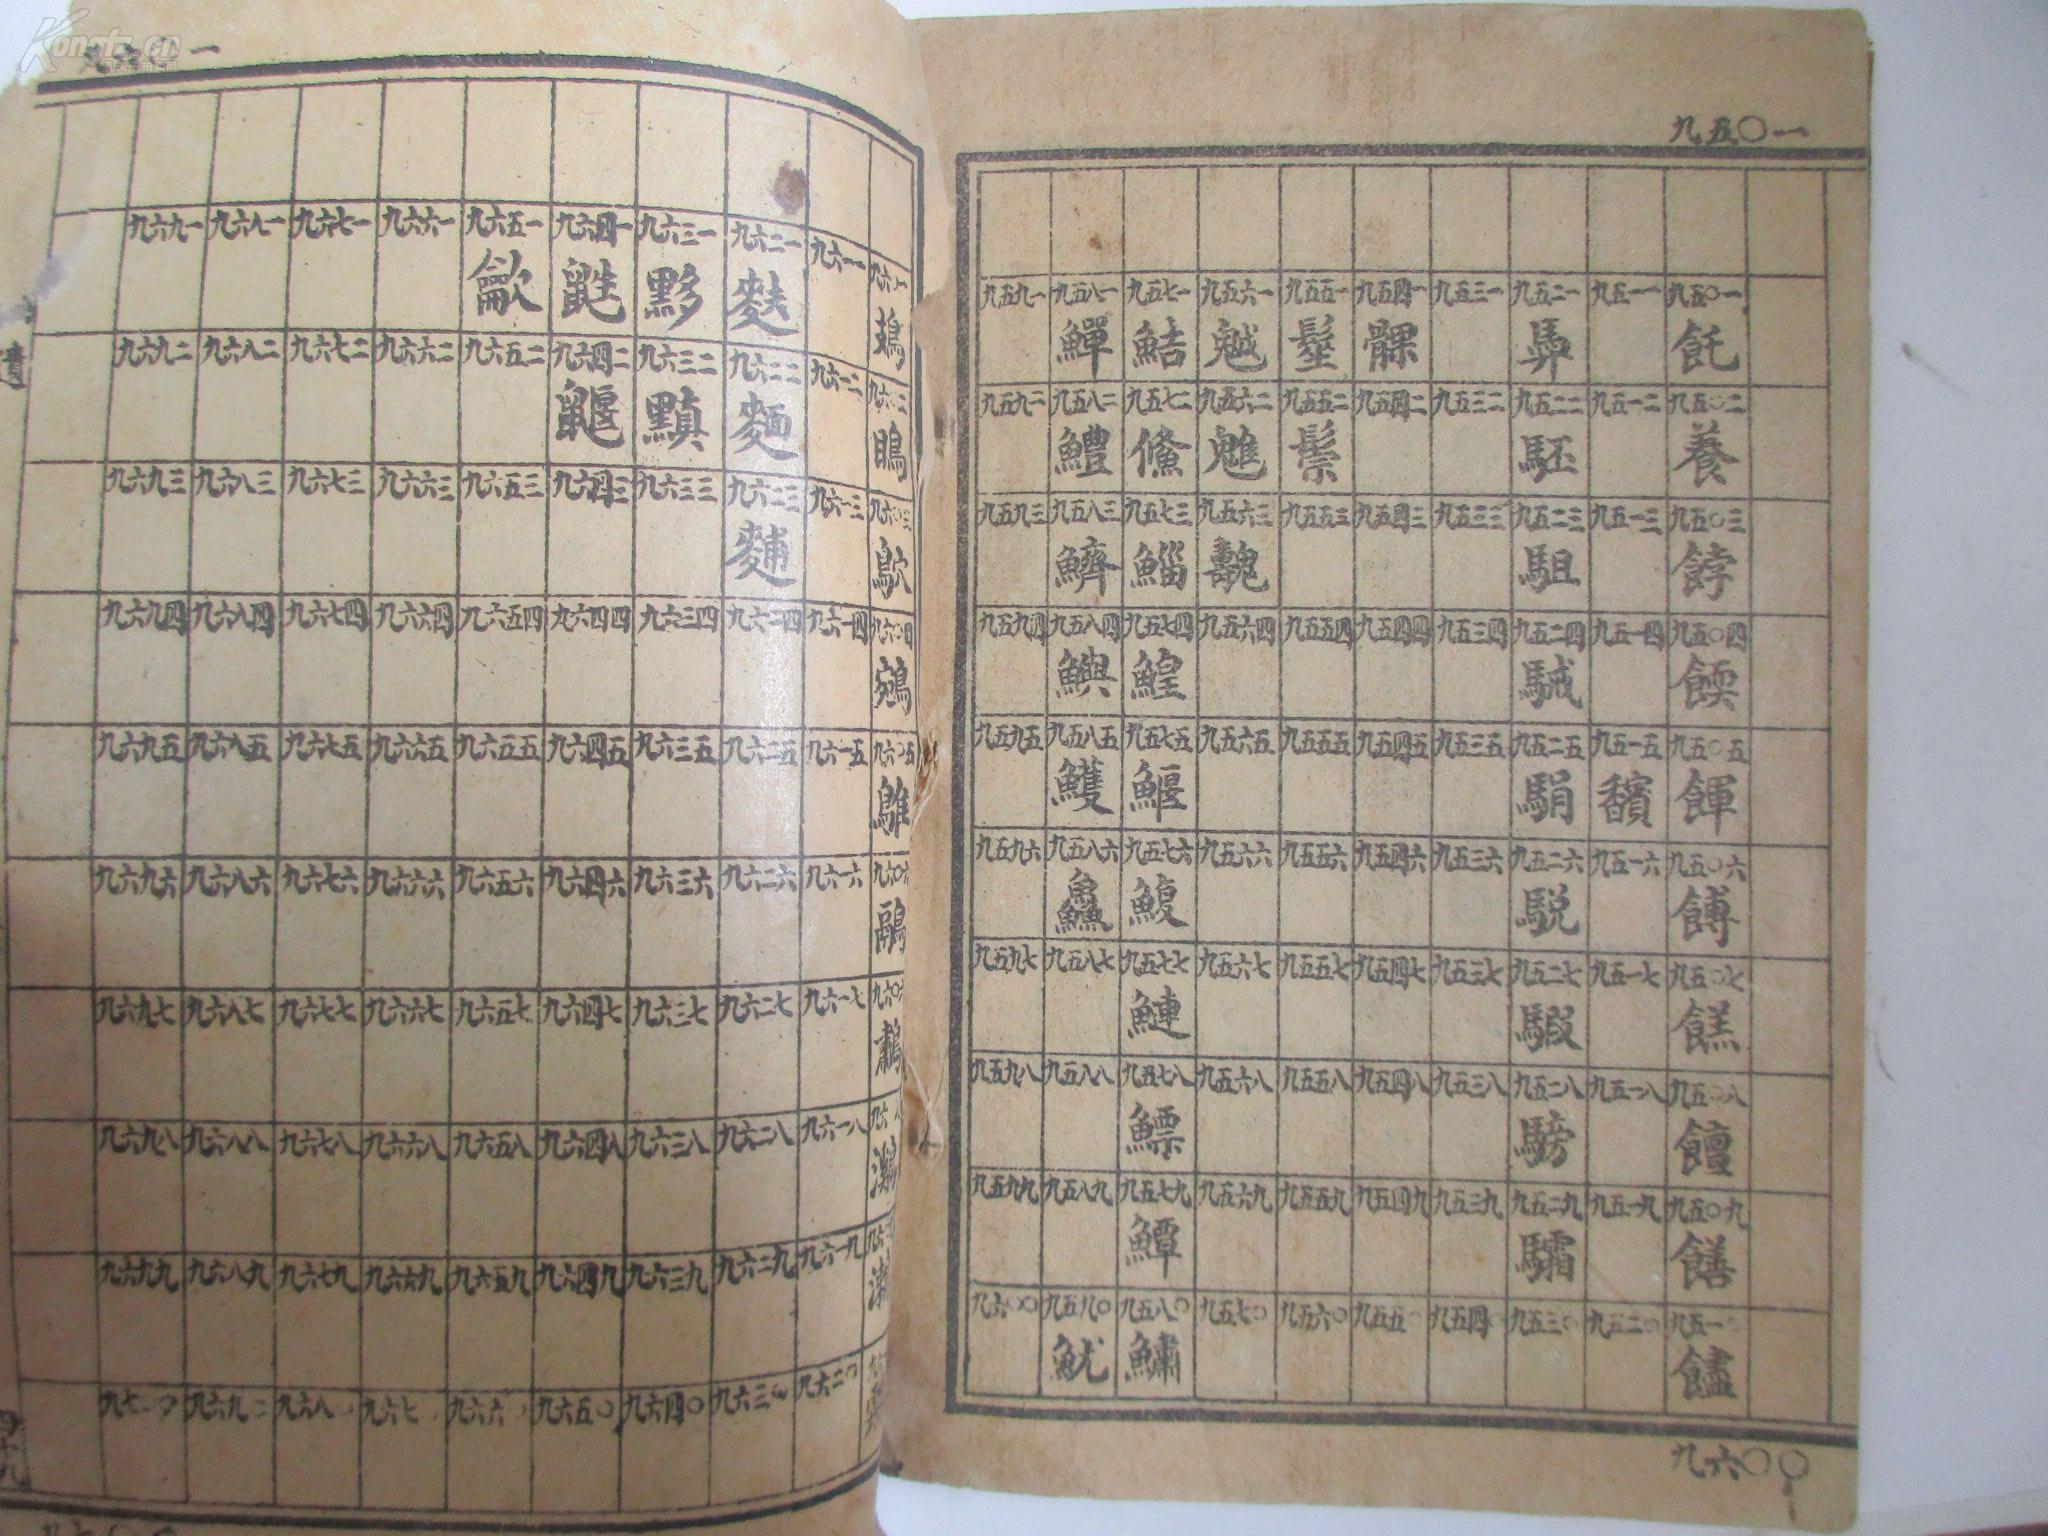 九五〇一
九五〇一 飥
九五〇二 養
九五〇三 餑
九五〇四 餪
九五〇五 餫
九五〇六 餺
九五〇七 餻
九五〇八 饘
九五〇九 饍
九五一〇
九五一一
九五一二
九五一三
九五一四
九五一五 馪
九五一六
九五一七
九五一八
九五一九
九五二〇
九五二一
九五二二 駓
九五二三 駔
九五二四 駴
九五二五 駽
九五二六 駾
九五二七 騢
九五二八 騯
九五二九 驦
九五三〇
九五三一
九五三二
九五三三
九五三四
九五三五
九五三六
九五三七
九五三八
九五三九
九五四〇
九五四一 髁
九五四二
九五四三
九五四四
九五四五
九五四六
九五四七
九五四八
九五四九
九五五〇
九五五一 髽
九五五二 鬃
九五五三
九五五四
九五五五
九五五六
九五五七
九五五八
九五五九
九五六〇
九五六一 魆
九五六二 魋
九五六三 魗
九五六四
九五六五
九五六六
九五六七
九五六八
九五六九
九五七〇
九五七一 鮚
九五七二 鯈
九五七三 鯔
九五七四 鰉
九五七五 鰋
九五七六 鰒
九五七七 鰱
九五七八 鰾
九五七九 鱏
九五八〇 鱐
九五八一 鱓
九五八二 鱧
九五八三 鱭
九五八四 鱮
九五八五 鱯
九五八六 鱻
九五八七
九五八八
九五八九
九五九〇 魷
九五九一
九五九二
九五九三
九五九四
九五九五
九五九六
九五九七
九五九八
九五九九
九六〇〇
九六〇〇
鴥
鵷
鵻
鷊
鷫
鸂
九六一一
九六一二
九六一三
九六一四
九六一五
九六一六
九六一七
九六一八
九六一九
九六二〇
九六二一 麩
九六二二 麵
九六二三 䴺
九六二四
九六二五
九六二六
九六二七
九六二八
九六二九
九六三〇
九六三一 黟
九六三二 黰
九六三三
九六三四
九六三五
九六三六
九六三七
九六三八
九六三九
九六四〇
九六四一 鼪
九六四二 鼴
九六四三
九六四四
九六四五
九六四六
九六四七
九六四八
九六四九
九六五〇
九六五一
九六五二
九六五三
九六五四
九六五五
九六五六
九六五七
九六五八
九六五九
九六六〇
九六六一
九六六二
九六六三
九六六四
九六六五
九六六六
九六六七
九六六八
九六六九
九六七
九六七一
九六七二
九六七三
九六七四
九六七五
九六七六
九六七七
九六七八
九六七九
九六八〇
九六八一
九六八二
九六八三
九六八四
九六八五
九六八六
九六八七
九六八八
九六八九
九六九〇
九六九一
九六九二
九六九三
九六九四
九六九五
九六九六
九六九七
九六九八
九六九九